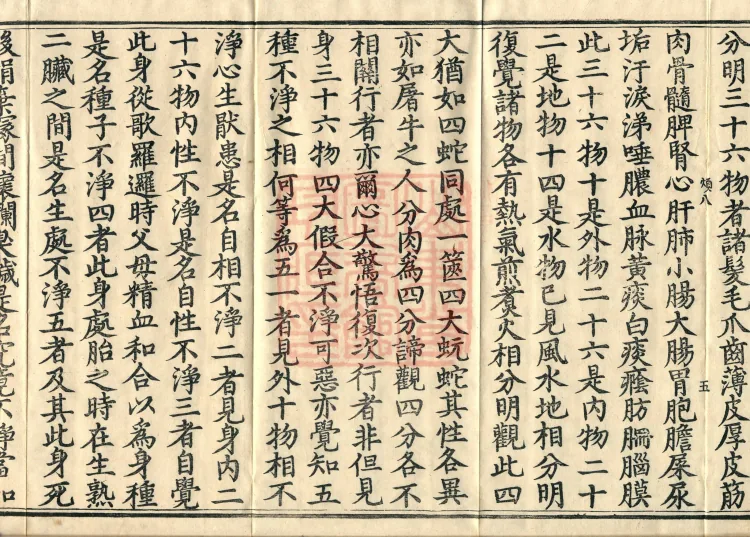 分明三十六物者諸髮毛爪齒薄皮厚皮筋
煩八 五
肉骨髓脾腎心肝肺小腸大腸胃胞膽屎尿
垢汗淚涕唾膿血脉黄痰白痰癊肪腦膜
此三十六物十是外物二十六是內物二十
二是地物十四是水物已見風水地相分明
復覺諸物各有熱氣煎煑火相分明觀此四
大猶如四蛇同處一篋四大蚖蛇其性各異
亦如屠牛之人分肉爲四分諦觀四分各不
相關行者亦爾心大驚悟復次行者非但見
身三十六物四大假合不淨可惡亦覺知五
種不淨之相何等爲五一者見外十物相不
淨心生猒患是名自相不淨二者見身內二
十六物內性不淨是名自性不淨三者自覺
此身從歌羅邏時父母精血和合以爲身種
是名種子不淨四者此身處胎之時在生熟
二臟之間是名生處不淨五者及其此身死
後捐棄塚間壞爛臭穢是名究竟不淨當知